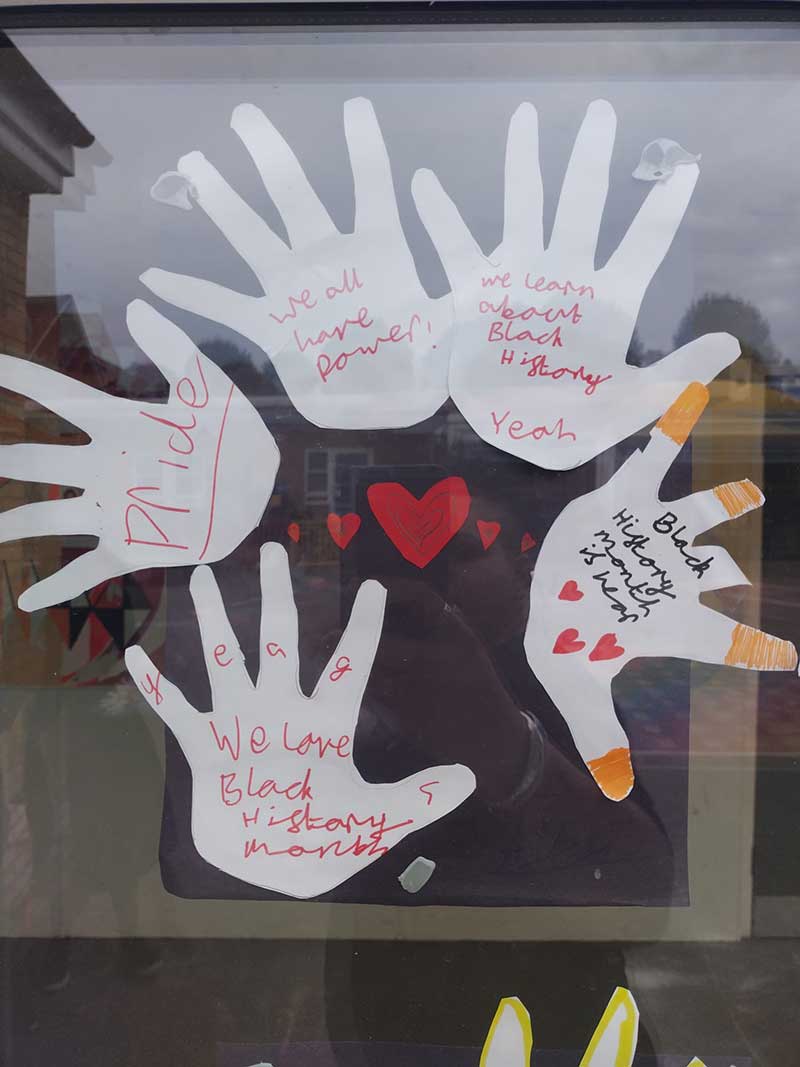 we all
have
power!
we learn
about
Black
History
Yeah
Pride
Black
History
month
is near
y e a g s
We love
Black
History
month